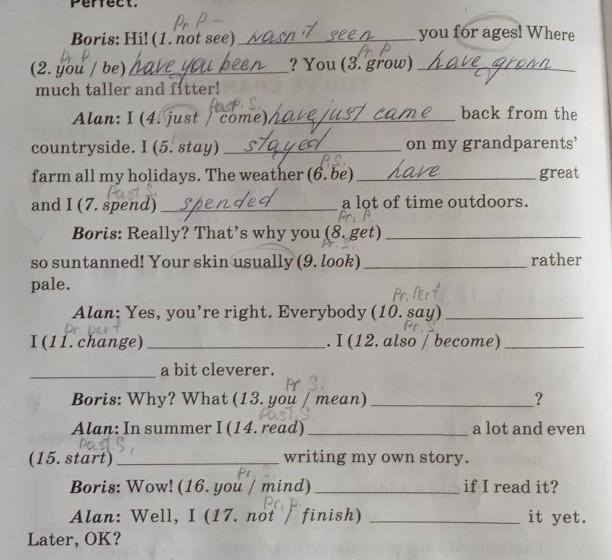 Perfect.
Pr. P -
Boris: Hi! (1. not see) hasn't seen you for ages! Where
Pr. P Pr. P
(2. you / be) have you been ? You (3. grow) have grown
much taller and fitter!
Past. S.
Alan: I (4. just / come) have just came back from the
countryside. I (5. stay) stayed on my grandparents'
P.S.
farm all my holidays. The weather (6. be) have great
Past S.
and I (7. spend) spended a lot of time outdoors.
Pr. P.
Boris: Really? That's why you (8. get)
Pr. S.
so suntanned! Your skin usually (9. look) rather
pale.
Pr. Perf
Alan: Yes, you're right. Everybody (10. say)
Pr. perf Pr. S.
I (11. change) . I (12. also / become)
a bit cleverer.
Pr S.
Boris: Why? What (13. you / mean) ?
Past. S.
Alan: In summer I (14. read) a lot and even
Past. S,
(15. start) writing my own story.
Pr. S.
Boris: Wow! (16. you / mind) if I read it?
Pr. P.
Alan: Well, I (17. not / finish) it yet.
Later, OK?